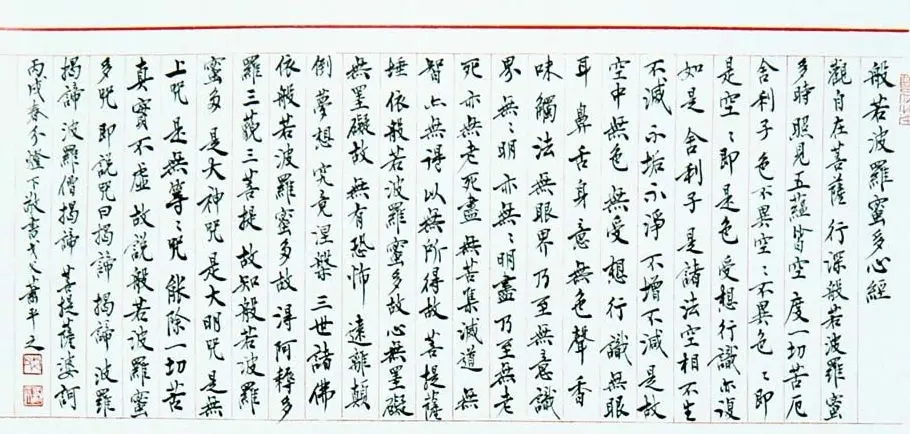 般若波羅蜜多心經
觀自在菩薩行深般若波羅蜜
多時照見五蘊皆空度一切苦厄
舍利子色不異空〻不異色〻即
是空〻即是色受想行識亦復
如是舍利子是諸法空相不生
不滅不垢不淨不增不減是故
空中無色無受想行識無眼
耳鼻舌身意無色聲香
味觸法無眼界乃至無意識
界無〻明亦無〻明盡乃至無老
死亦無老死盡無苦集滅道無
智亦無得以無所得故菩提薩
埵依般若波羅蜜多故心無罣礙
無罣礙故無有恐怖遠離顛
倒夢想究竟涅槃三世諸佛
依般若波羅蜜多故得阿耨多
羅三藐三菩提故知般若波羅
蜜多是大神咒是大明咒是無
上咒是無等〻咒能除一切苦
真實不虛故說般若波羅蜜
多咒即說咒曰揭諦揭諦波羅
揭諦波羅僧揭諦菩提薩婆訶
丙戌春分燈下敬書 蕭平之